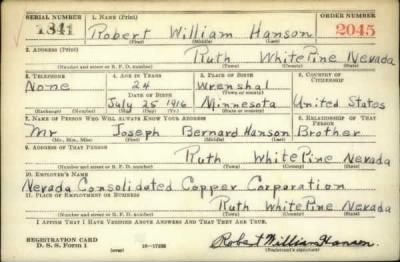 SERIAL NUMBER 1. NAME (Print) ORDER NUMBER
1341 Robert William Hanson 2045
(First) (Middle) (Last)
2. ADDRESS (Print)
Ruth White Pine Nevada
(Number and street or R. F. D. number) (Town) (County) (State)
3. TELEPHONE 4. AGE IN YEARS 5. PLACE OF BIRTH 6. COUNTRY OF CITIZENSHIP
None 24 Wrenshal
DATE OF BIRTH (Town or county)
July 25 1916 Minnesota United States
(Exchange) (Number) (Mo.) (Day) (Yr.) (State or country)
7. NAME OF PERSON WHO WILL ALWAYS KNOW YOUR ADDRESS 8. RELATIONSHIP OF THAT PERSON
Mr Joseph Bernard Hanson Brother
(Mr., Mrs., Miss) (First) (Middle) (Last)
9. ADDRESS OF THAT PERSON
Ruth White Pine Nevada
(Number and street or R. F. D. number) (Town) (County) (State)
10. EMPLOYER'S NAME
Nevada Consolidated Copper Corporation
11. PLACE OF EMPLOYMENT OR BUSINESS
Ruth White Pine Nevada
(Number and street or R. F. D. number) (Town) (County) (State)
I AFFIRM THAT I HAVE VERIFIED ABOVE ANSWERS AND THAT THEY ARE TRUE.
REGISTRATION CARD Robert William Hanson
D. S. S. Form 1 (over) (Registrant's signature)